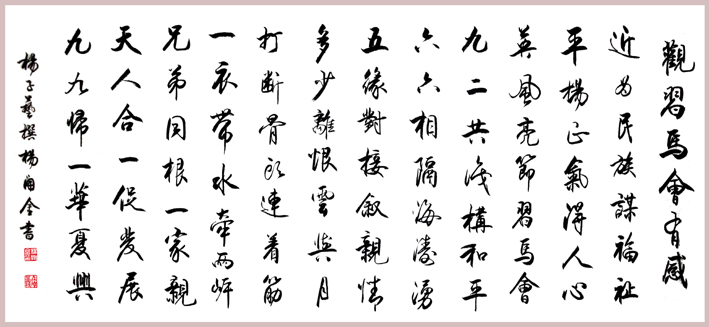 觀習馬會有感
近为民族謀福祉
平揚正氣得人心
英風亮節習馬會
九二共識構和平
六六相隔海濤湧
五緣對接叙親情
多少離恨雲與月
打斷骨头連着筋
一衣帶水牽兩岸
兄弟同根一家親
天人合一促發展
九九歸一華夏興
楊子藝撰楊書